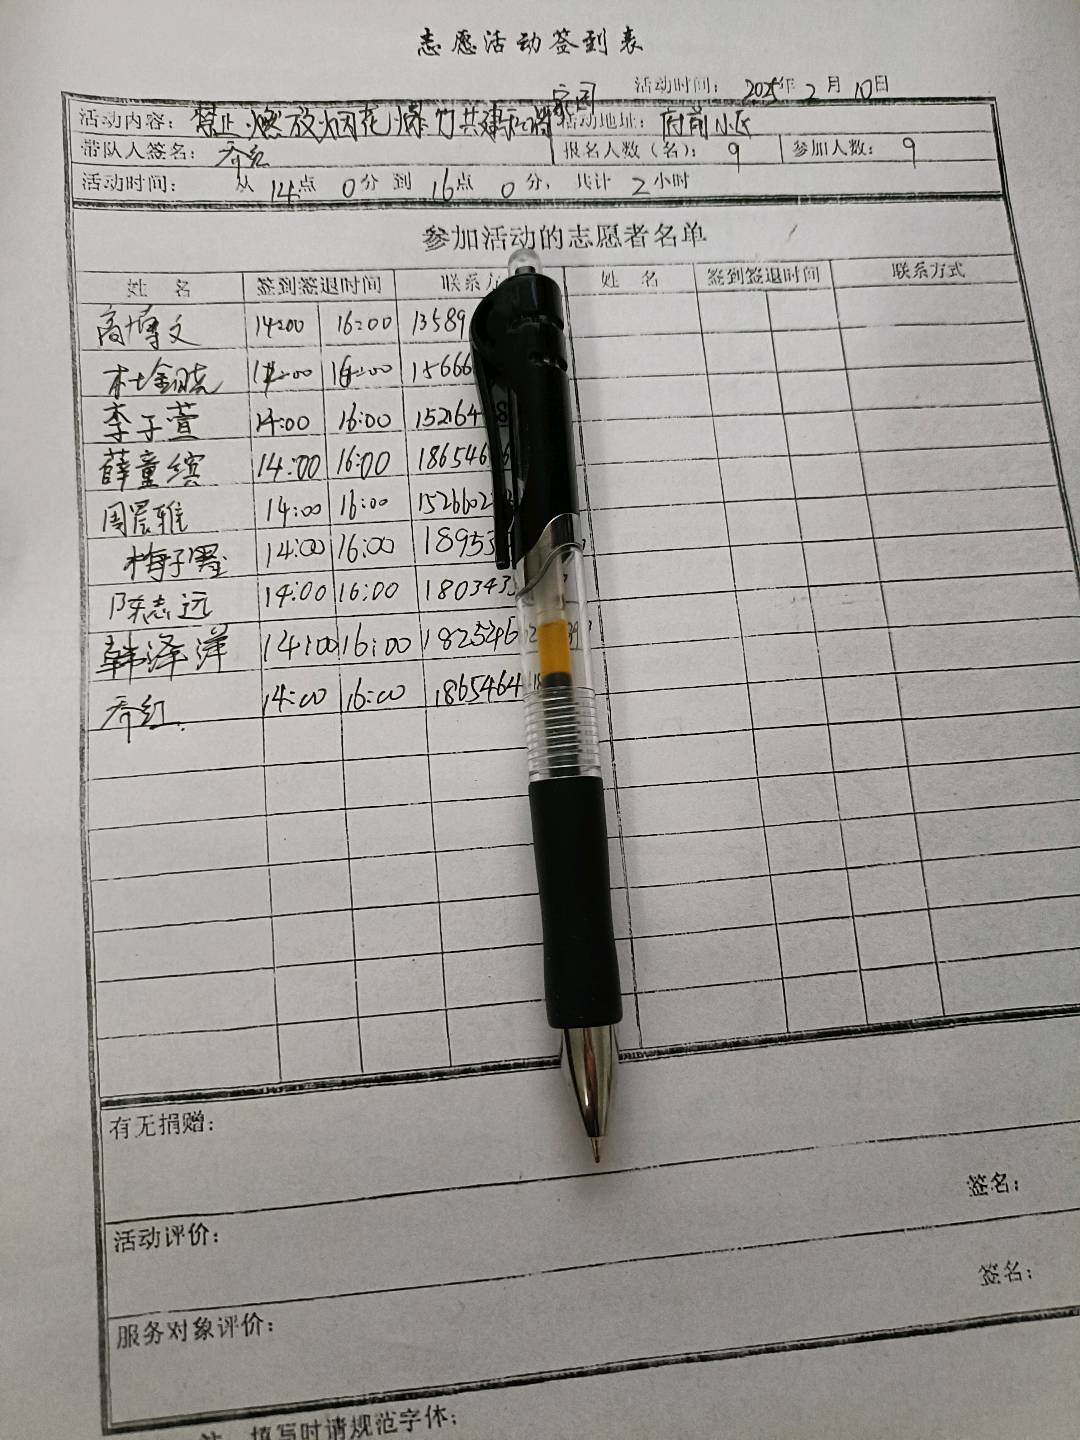 志愿活动签到表
活动时间： 2025年 2 月 10日
活动内容： 禁止燃放烟花爆竹共建和谐家园 活动地址： 府前小区
带队人签名： 乔红 报名人数（名）： 9 参加人数： 9
活动时间： 从 14点 0分 到 16点 0分， 共计 2小时
参加活动的志愿者名单
姓 名 签到签退时间 联系方 姓 名 签到签退时间 联系方式
高博文 14:00 16:00 13589
杜金晓 14:00 16:00 15666
李子萱 14:00 16:00 15264
薛童缤 14:00 16:00 18654
周晨雅 14:00 16:00 1526602
梅子墨 14:00 16:00 18953
陈志远 14:00 16:00 180343
韩泽洋 14:00 16:00 1825246
乔红. 14:00 16:00 1865464
有无捐赠：
签名：
活动评价：
签名：
服务对象评价：
注 填写时请规范字体；